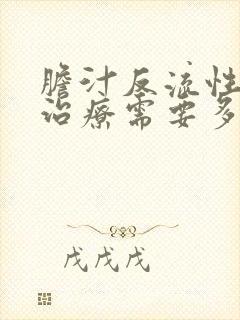 胆汁反流性
治疗需要多
戊戊戊